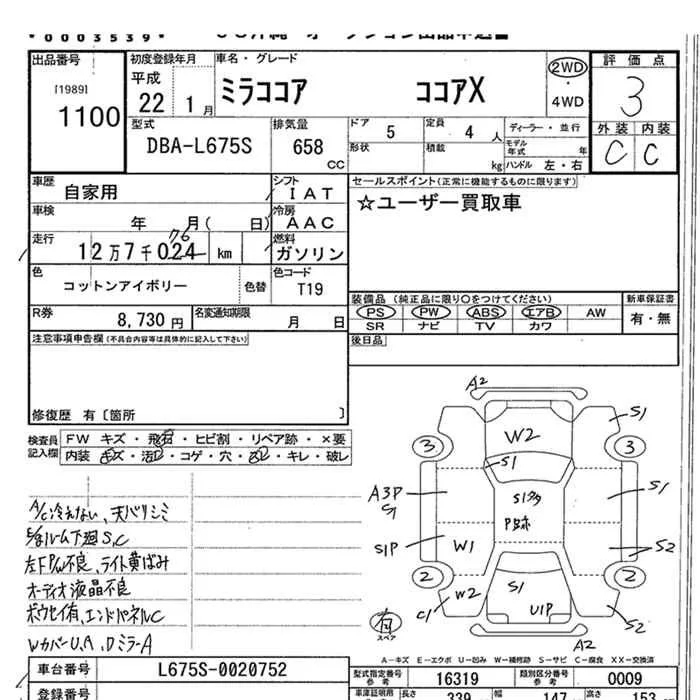 *0003539*
出品番号
[1989]
1100
初度登録年月
平成
22 1月
車名・グレード
ミラココア ココアX
2WD
・
4WD
評価点
3
外装 内装
C C
型式
DBA-L675S
排気量
658
CC
ドア 5
定員 4 人
ディーラー・並行
形状
積載 kg
モデル年式 年
ハンドル 左・右
車歴
自家用
シフト
IAT
車検
年 月( 日)
冷房
AAC
走行
12万7千024 km
76
燃料
ガソリン
色
コットンアイボリー
色替
色コード
T19
R券
8,730円
名変通知期限
月 日
セールスポイント(正常に機能するものに限ります)
☆ユーザー買取車
装備品 (純正品に限り〇をつけてください)
新車保証書
PS PW ABS エアB AW
有・無
SR ナビ TV カワ
後日品
注意事項申告欄(不具合内容等は具体的に記入して下さい)
修復歴 有 [箇所 ]
検査員記入欄
FW キズ・飛石・ヒビ割・リペア跡・×要
内装 キズ・汚レ・コゲ・穴・スレ・キレ・破レ
A/C冷えない、天バリシミ
ルーム下廻S,C
左FPW不良、ライト黄ばみ
オーディオ液晶不良
ボウセイ有、エンドパネルC
WカバーU,A、DミラーA
A2
S1
W2
3
3
S1
A3P
S1
S1
S1多
P跡
S1P
W1
S2
2
2
S1
W2
C1
U1P
S2
A2
有
スペア
A-キズ E-エクボ U-凹み W-補修跡 S-サビ C-腐食 XX-交換済
車台番号
L675S-0020752
型式指定番号
16319
類別区分番号
0009
登録番号
車庫証明用
長さ 339
幅 147
高さ 153